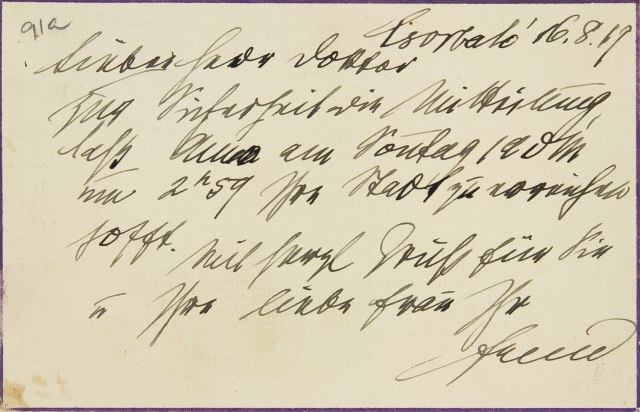 91a
Csorbató 16.8.17
Lieber Herr Doktor
Zur Sicherheit die Mitteilung,
daß Anna am Sontag 19 d M
um 2ʰ59 Ihre Stadt zu erreichen
hofft.
Mit herzl Gruß für Sie
u Ihre liebe Frau Ihr
Freud